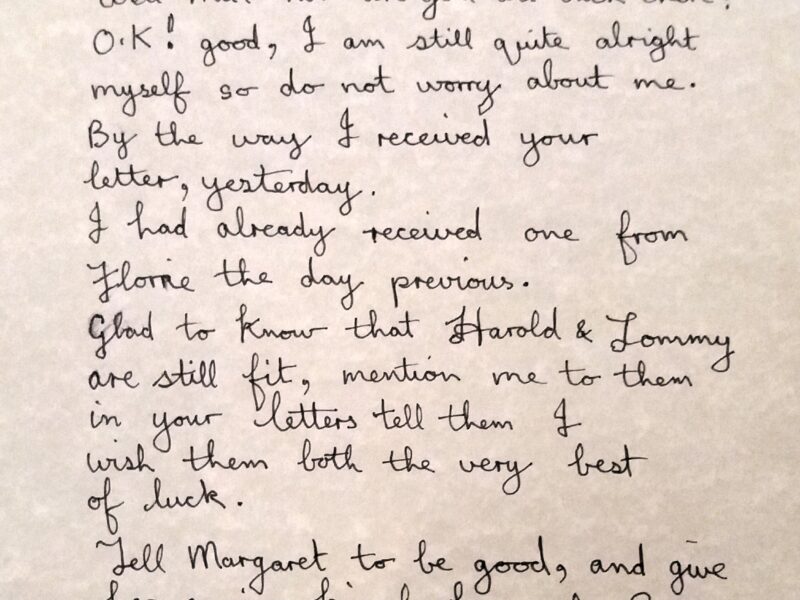 O.K! good, I am still quite alright
myself so do not worry about me.
By the way I received your
letter, yesterday.
I had already received one from
Florrie the day previous.
Glad to know that Harold & Tommy
are still fit, mention me to them
in your letters tell them I
wish them both the very best
of luck.
Tell Margaret to be good, and give